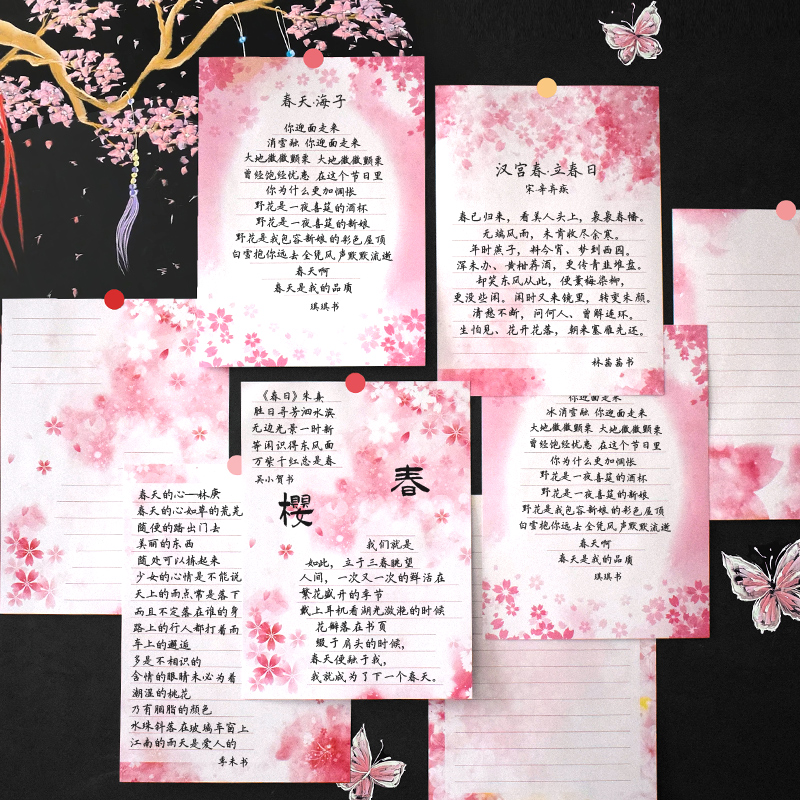 春天·海子
你迎面走来
消雪融 你迎面走来
大地微微颤栗 大地微微颤栗
曾经饱经忧患 在这个节日里
你为什么更加惆怅
野花是一夜喜筵的酒杯
野花是一夜喜筵的新娘
野花是我包容新娘的彩色屋顶
白雪抱你远去 全凭风声默默流逝
春天啊
春天是我的品质
琪琪书
汉宫春·立春日
宋·辛弃疾
春已归来，看美人头上，袅袅春幡。
无端风雨，未肯收尽余寒。
年时燕子，料今宵、梦到西园。
浑未办、黄柑荐酒，更传青韭堆盘。
却笑东风从此，便薰梅染柳，
更没些闲。闲时又来镜里，转变朱颜。
清愁不断，问何人、曾解连环。
生怕见、花开花落，朝来塞雁先还。
林茵茵书
《春日》朱熹
胜日寻芳泗水滨
无边光景一时新
等闲识得东风面
万紫千红总是春
吴小贺书
春
樱
我们就是
如此，立于三春眺望
人间，一次又一次的鲜活在
繁花盛开的季节
戴上耳机看湖光潋滟的时候
花瓣落在书页
缀于肩头的时候，
春天便融于我，
我就成为了下一个春天。
你迎面走来
冰消雪融 你迎面走来
大地微微颤栗 大地微微颤栗
曾经饱经忧患 在这个节日里
你为什么更加惆怅
野花是一夜喜筵的酒杯
野花是一夜喜筵的新娘
野花是我包容新娘的彩色屋顶
白雪抱你远去 全凭风声默默流逝
春天啊
春天是我的品质
琪琪书
春天的心—林庚
春天的心如草的荒芜
随便的踏出门去
美丽的东西
随处可以拣起来
少女的心情是不能说
天上的雨点常是落下
而且不定落在谁的身
路上的行人都打着雨
车上的邂逅
多是不相识的
含情的眼睛未必为着
潮湿的桃花
乃有胭脂的颜色
水珠斜落在玻璃车窗上
江南的雨天是爱人的
李未书